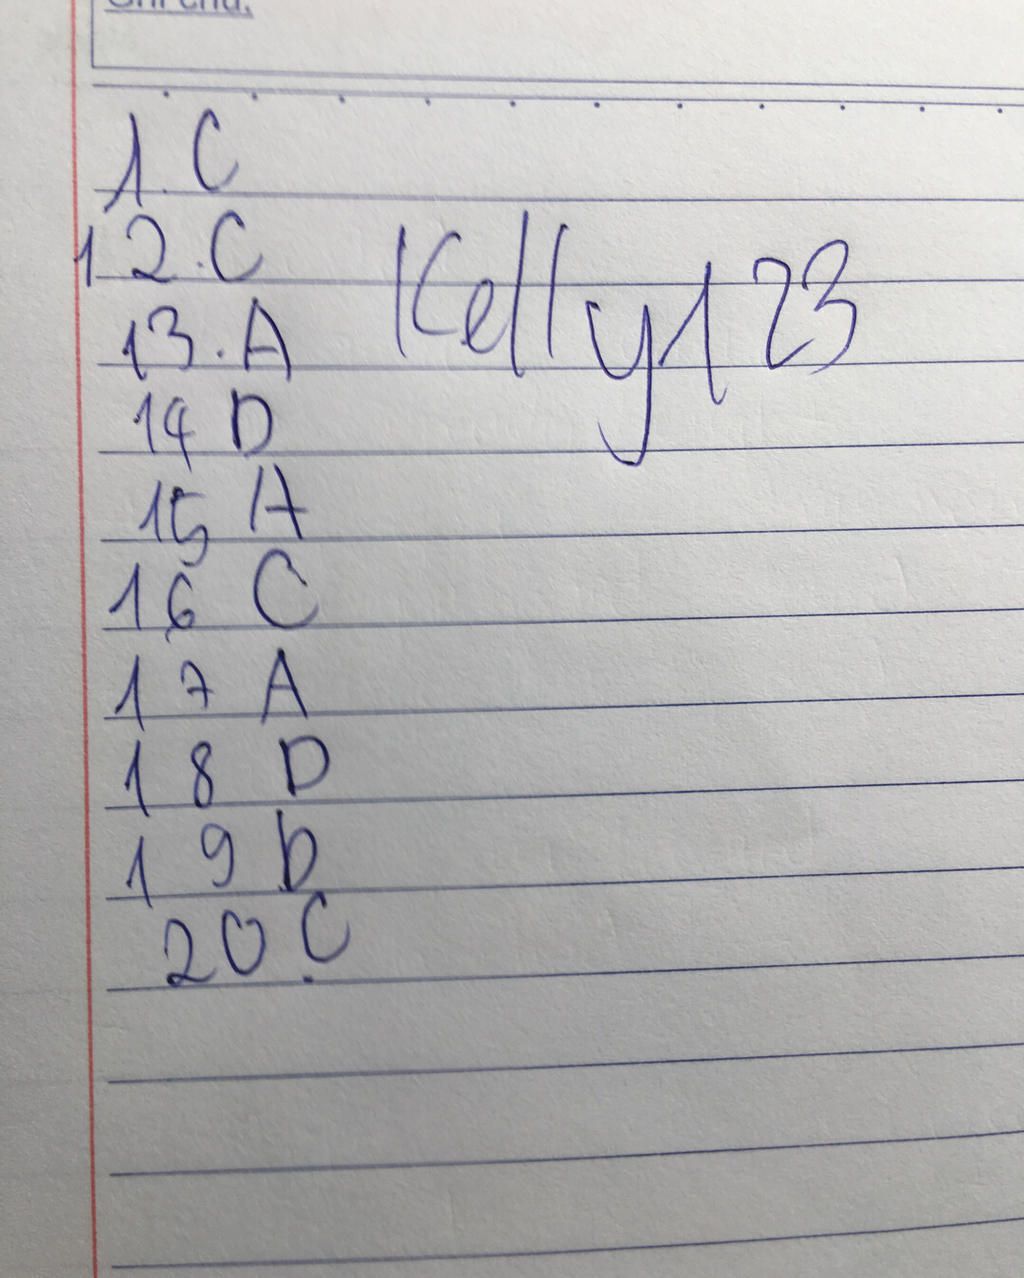 1. C
12. C
Kelly123
13. A
14 D
15 A
16 C
17 A
18 D
19 D
20 C